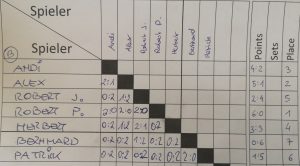 Spieler
Spieler
Andi Alex Robert J. Robert P. Herbert Bernhard Patrick Points Sets Place
B
ANDI 4:2 3
ALEX 2:1 5:1 2
ROBERT J. 0:2 1:2 2:4 5
ROBERT P. 2:0 6:0 1
HERBERT 0:2 1:2 2:1 0:2 3:3 4
BERNHARD 0:2 0:2 1:2 0:2 0:6 7
PATRICK 0:2 0:2 0:2 2:0 1:5 6